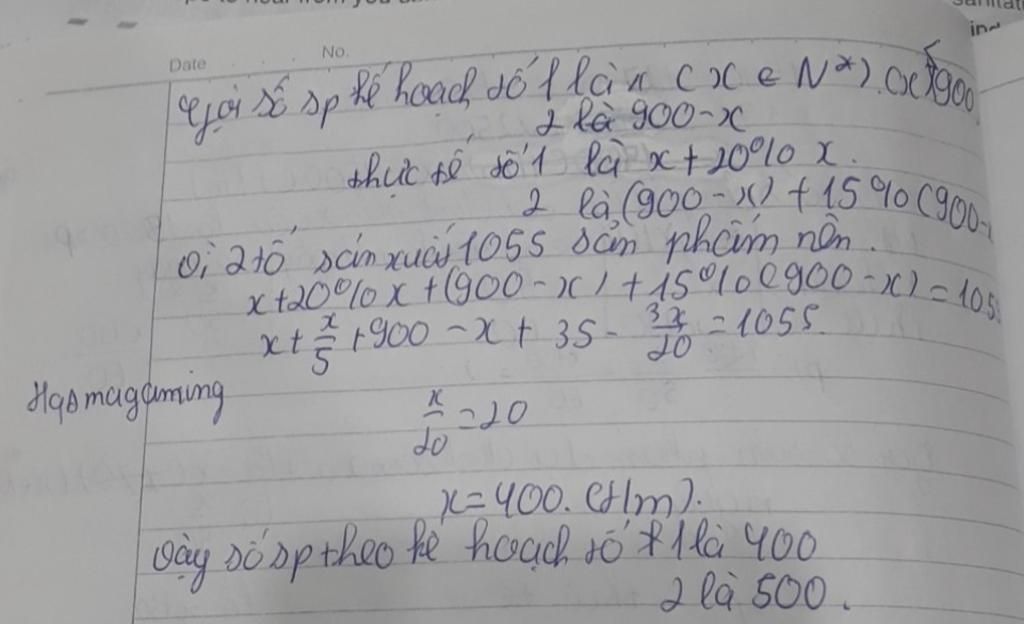 sanitat
Date No.
Gọi số sp kế hoạch tổ 1 là x (x ∈ N*) (x<900
2 là 900-x
thực tế tổ 1 là x + 20% x.
2 là (900 - x) + 15% (900-
Vì 2 tổ sản xuất 1055 sản phẩm nên.
x+20%x+(900-x)+15%(900-x)=105
x + x/5 + 900 - x + 35 - 3x/20 = 1055.
Hqsmagaming
x/20 = 20
x=400. (t/m).
Vậy số sp theo kế hoạch tổ 1 là 400
2 là 500.